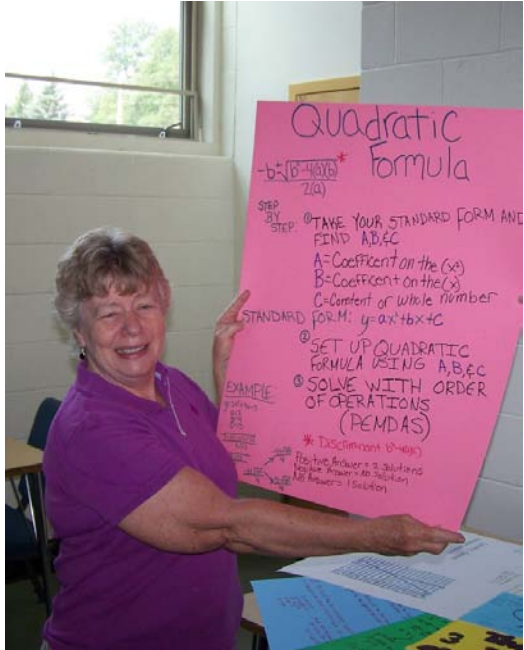 Quadratic
Formula
-b±√b²-4(a)(b) *
2(a)
STEP
BY
STEP:
① TAKE YOUR STANDARD FORM AND
FIND A,B,&C
A=Coefficent on the (x²)
B=Coefficent on the (x)
C=Constent or whole number
STANDARD FORM: y=ax²+bx+c
② SET UP QUADRATIC
FORMULA USING A,B,&C
③ SOLVE WITH ORDER
OF OPERATIONS
(PEMDAS)
EXAMPLE:
* Discriminant
Positive Answer = 2 Solutions
Negative Answer = No Solution
No Answer = 1 Solution